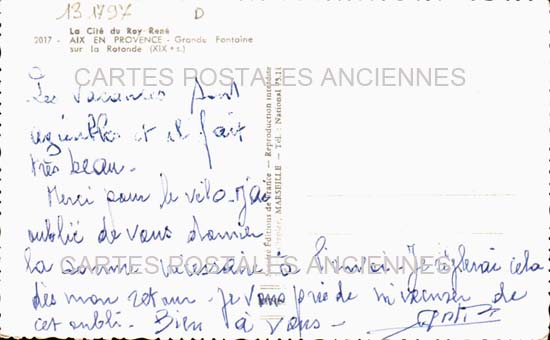 13.1797 D
La Cité du Roy René
2017 - AIX EN PROVENCE - Grande Fontaine
sur la Rotonde (XIX e s.)
CARTES POSTALES ANCIENNES
Les vacances sont
agréables et il fait
très beau.
Merci pour le vélo. J'ai
oublié de vous donner
la somme nécessaire à
Je règlerai cela
dès mon retour. Je vous prie de m'excuser de
cet oubli. Bien à vous -
CARTES POSTALES ANCIENNES
Editions de France - Reproduction interdite
MARSEILLE - Tél. National 75.11